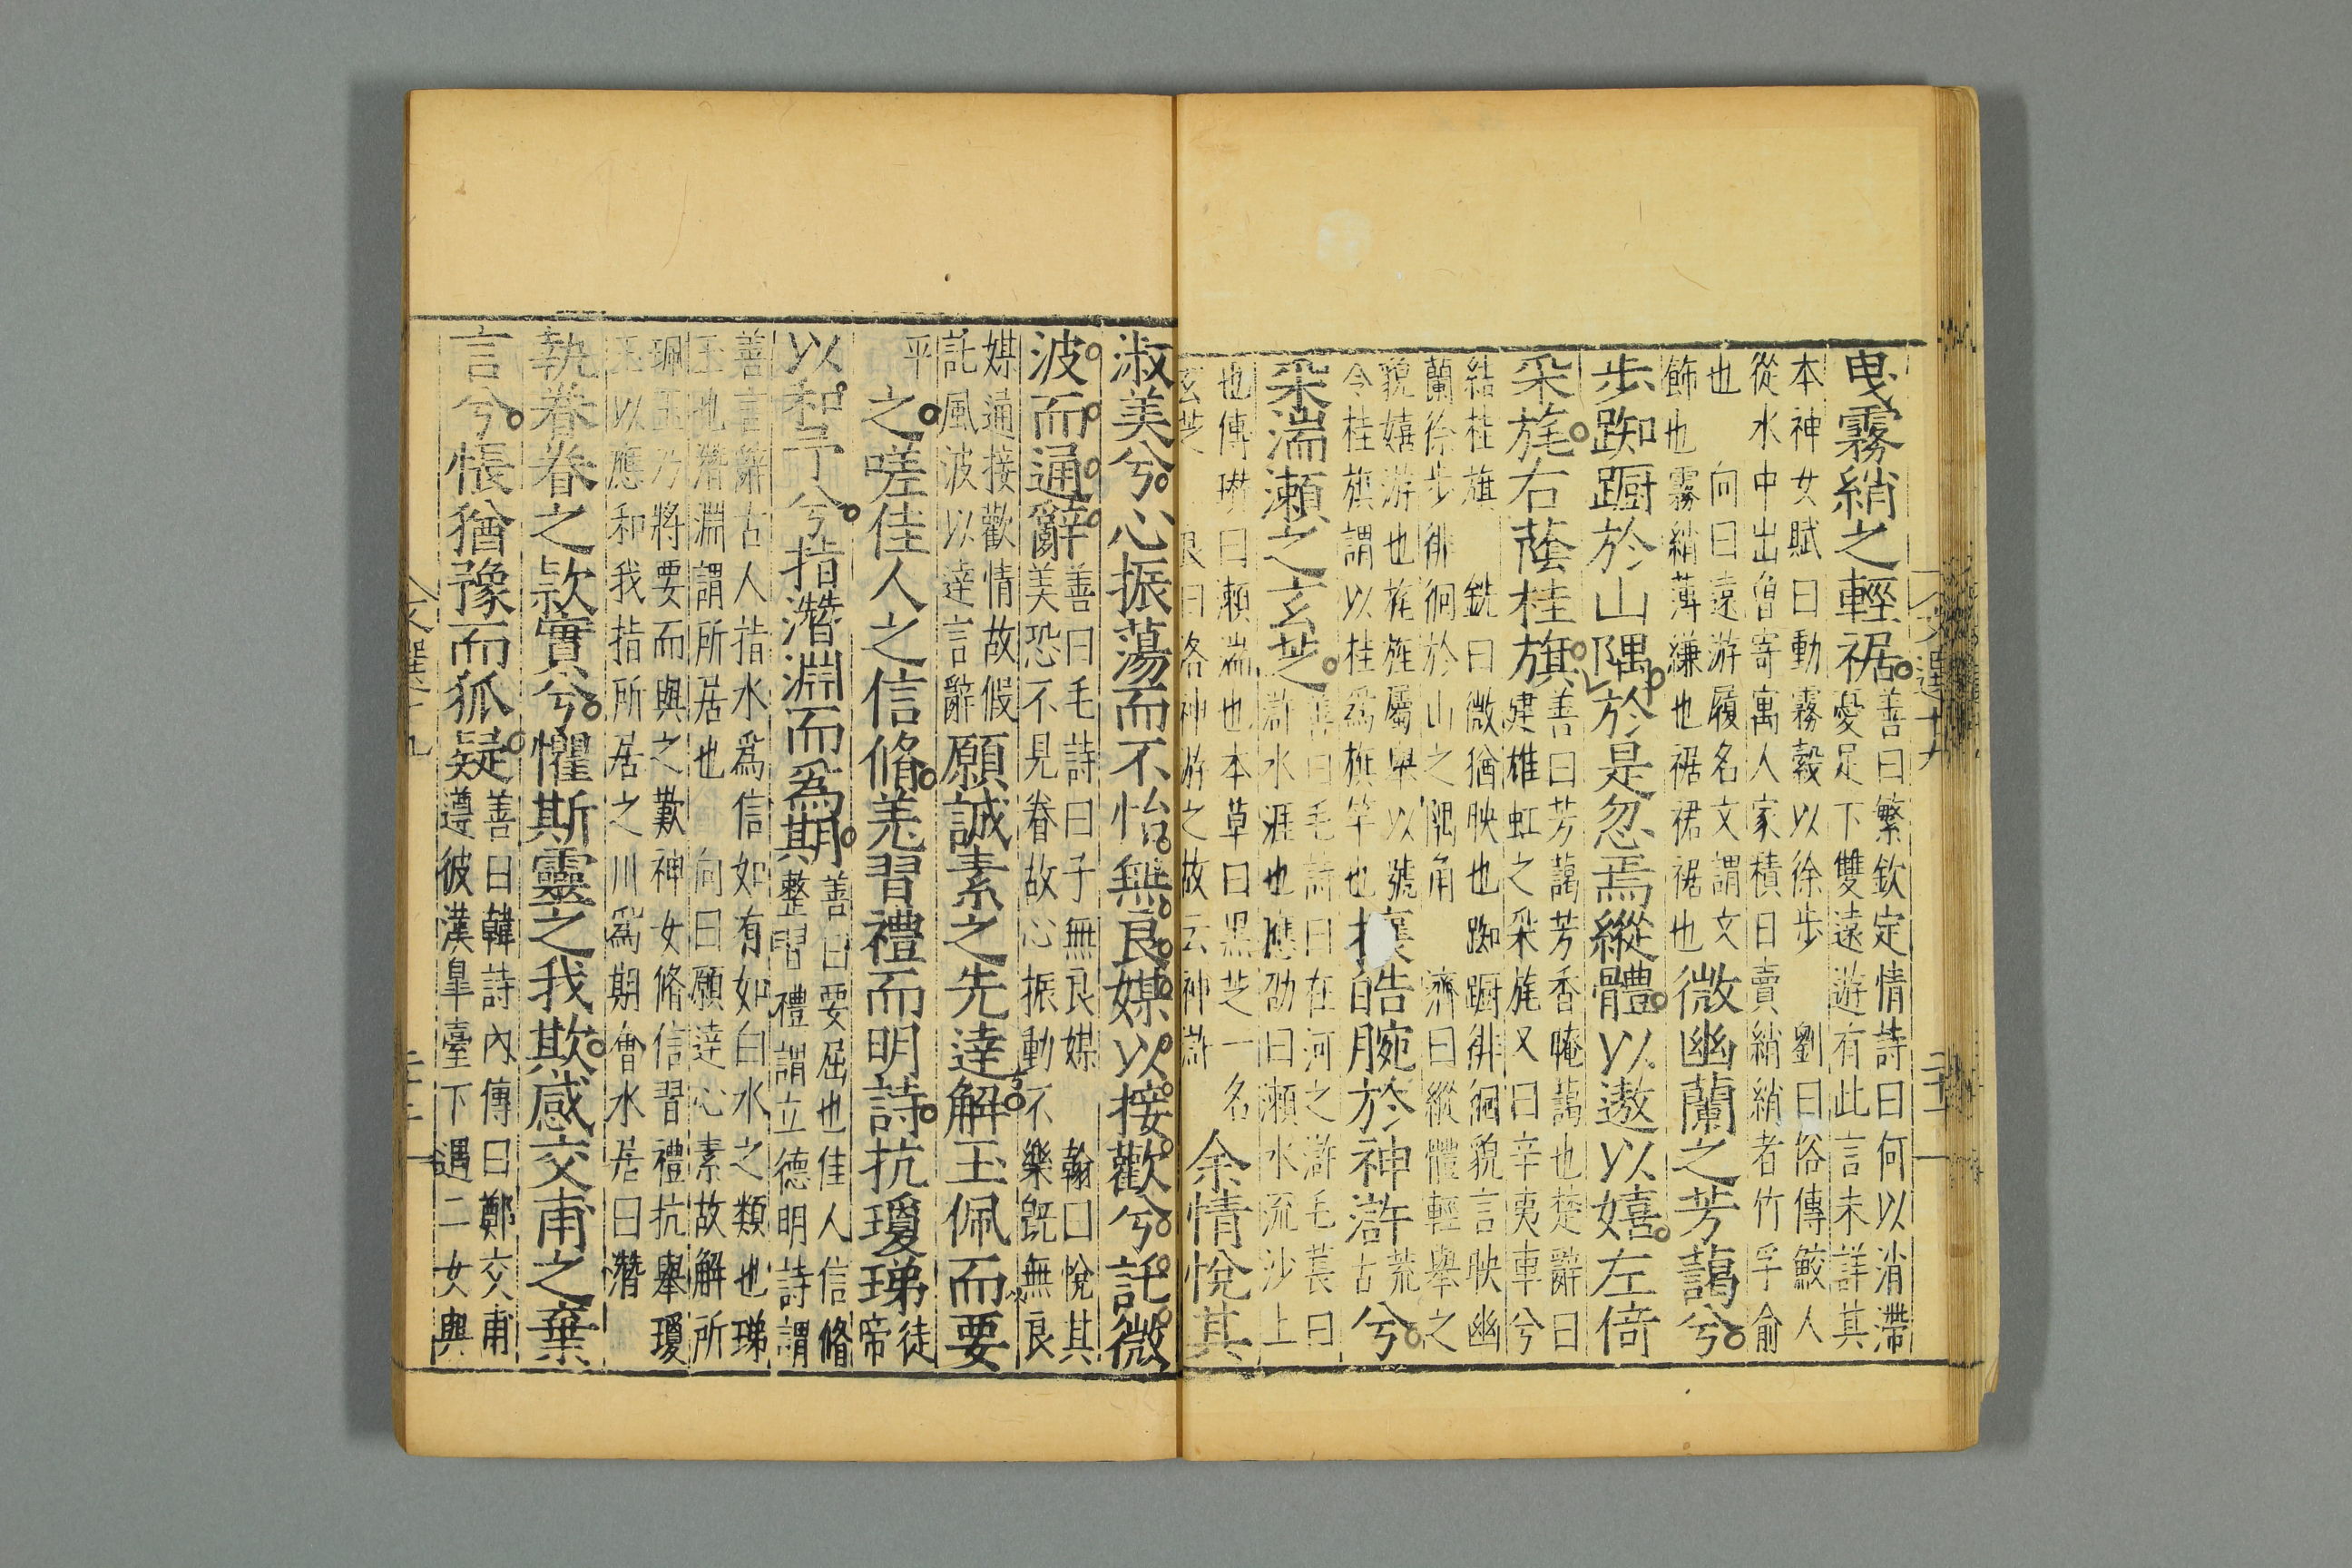 曳霧綃之輕裾善曰繁欽定情詩曰何以消滯憂足下雙遠遊有此言未詳其
本神女賦曰動霧縠以徐步 劉曰俗傳鮫人從水中出曾寄寓人家積日賣綃綃者竹孚俞
也 向曰遠游履名文謂文飾也霧綃薄縑也裾裙裾也微幽蘭之芳藹兮
步踟躕於山隅於是忽焉縱體以遨以嬉左倚
采旄右蔭桂旗善曰芳藹芳香晻藹也楚辭曰建雄虹之采旄又曰辛夷車兮
結桂旗 銑曰微猶映也踟躕徘徊貌言映幽蘭徐步徘徊於山之隅角 濟曰縱體輕舉之
貌嬉游也旄旌屬舉以號令桂旗謂以桂爲旗竿也攘皓腕於神滸荒古兮
采湍瀨之玄芝善曰毛詩曰在河之滸毛萇曰滸水涯也應劭曰瀨水流沙上
也傳瓚曰瀨湍也本草曰黑芝一名玄芝 良曰洛神游之故云神滸余情悅其
文選十九
二十一
淑美兮心振蕩而不怡無良媒以接歡兮託微
波而通辭善曰毛詩曰子無良媒 翰曰悅其美恐不見眷故心振動不樂旣無良
媒通接歡情故假託風波以達言辭願誠素之先達解玉佩而要
平之嗟佳人之信脩羌習禮而明詩抗瓊珶徒帝
以和予兮指潛淵而爲期善曰要屈也佳人信脩整習禮謂立德明詩謂
善言辭古人指水爲信如有如白水之類也珶玉也潛淵謂所居也 向曰願達心素故解所
珮玉乃將要而與之歎神女脩信習禮抗舉瓊玉以應和我指所居之川爲期會水居曰潛
執眷眷之款實兮懼斯靈之我欺感交甫之棄
言兮悵猶豫而狐疑善曰韓詩內傳曰鄭交甫遵彼漢皐臺下遇二女與